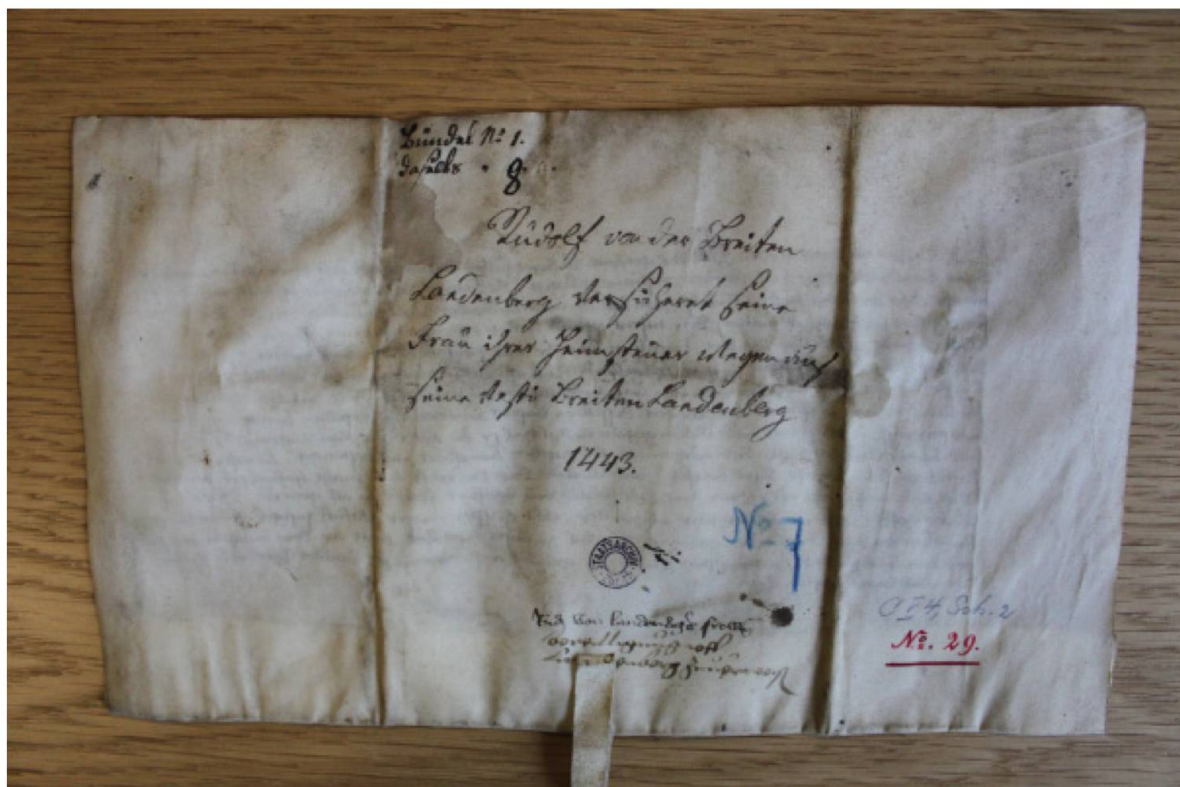 Bündel No 1.
daselbs " 8
Rudolf von der Breiten
Landenberg versicheret seine
Frau ihrer Heimsteuer wegen auf
seine Vesti Breiten Landenberg
1443.
No 7
STAATSARCHIV
von Landenberg
C I 4, Sch. 2
No. 29.